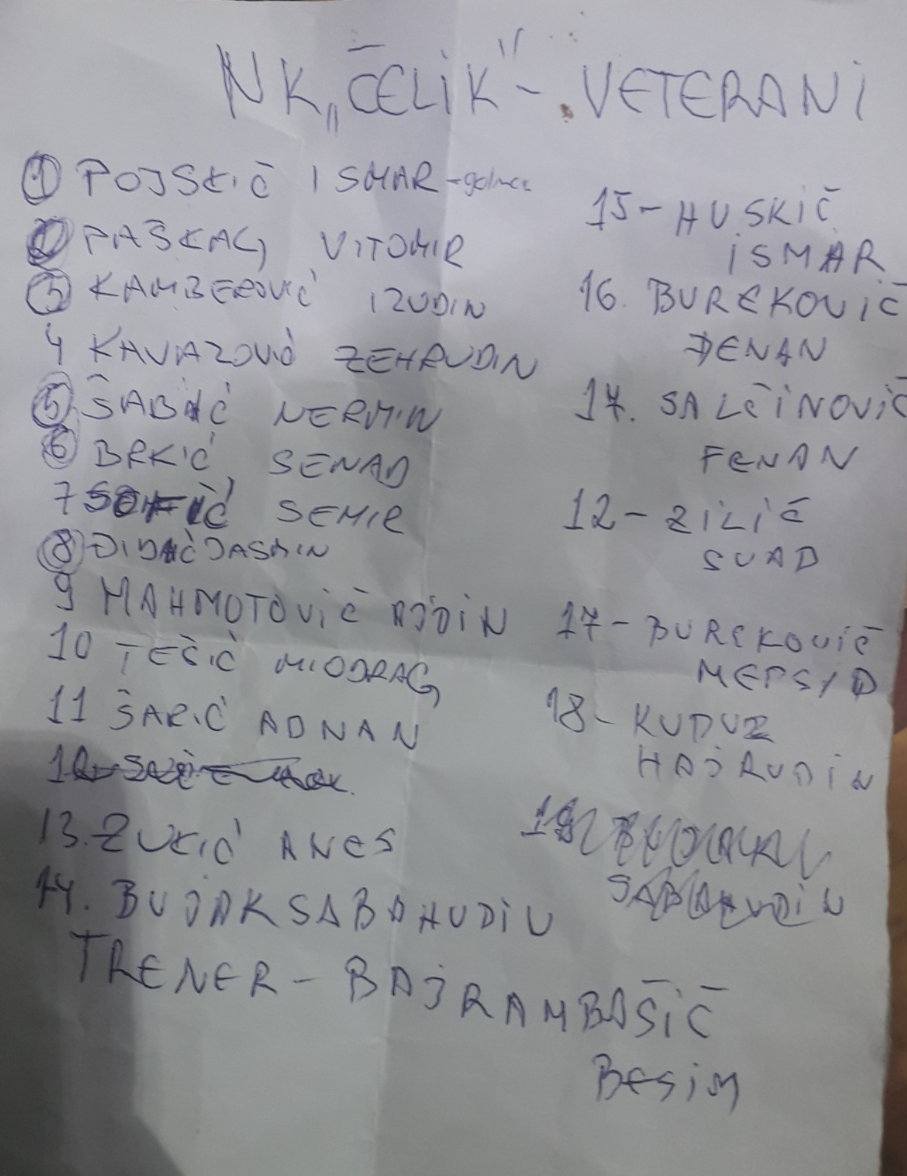 NK „ČELIK" - VETERANI
1 POJSKIĆ ISMAR - golman
2 PAŠKALJ VITOMIR
3 KAMBEROVIĆ IZUDIN
4 KAVAZOVIĆ ZEHRUDIN
5 ŠABIĆ NERMIN
6 BRKIĆ SENAD
7 SEMIR
8 ĐIDIĆ JASMIN
9 MAHMOTOVIĆ AJDIN
10 TEŠIĆ MIODRAG
11 ŠARIĆ ADNAN
13. ZUKIĆ ANES
14. BUJAK SABAHUDIN
TRENER - BAJRAMBAŠIĆ
BESIM
15 - HUSKIĆ
ISMAR
16. BUREKOVIĆ
DENAN
17. SALČINOVIĆ
FENAN
12 - ZILIĆ
SUAD
17 - BUREKOVIĆ
MEPSID
18 - KUDUZ
HAJRUDIN
19
SABAHUDIN